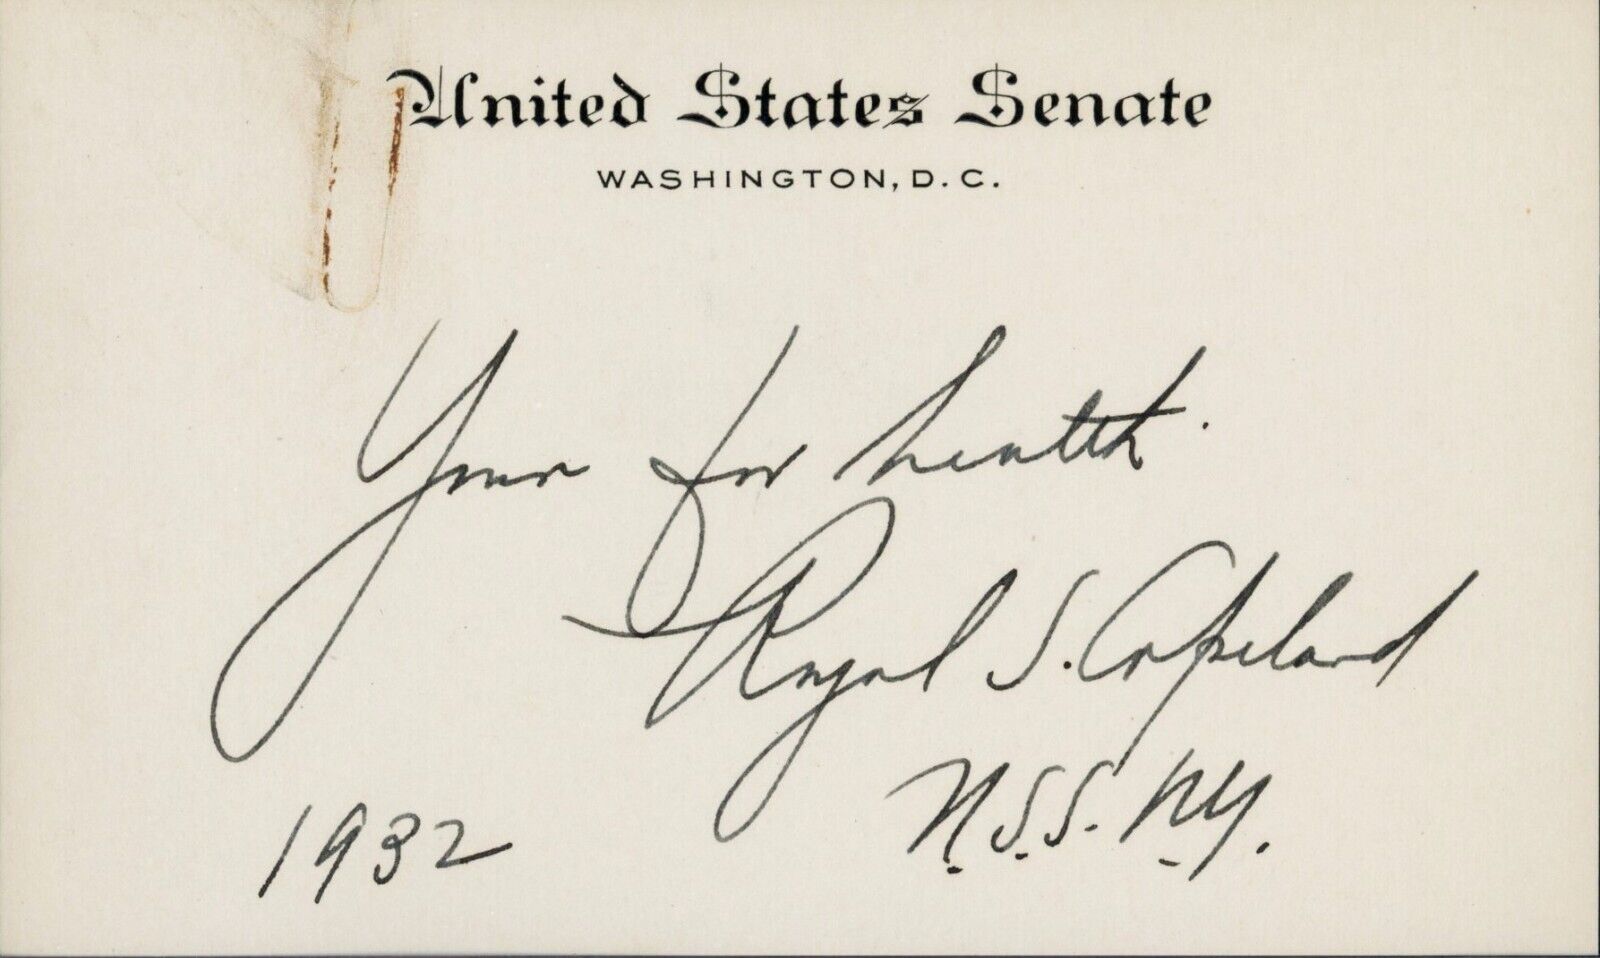 United States Senate
WASHINGTON, D. C.
Yours for health.
Royal S. Copeland
U.S.S. N.Y.
1932